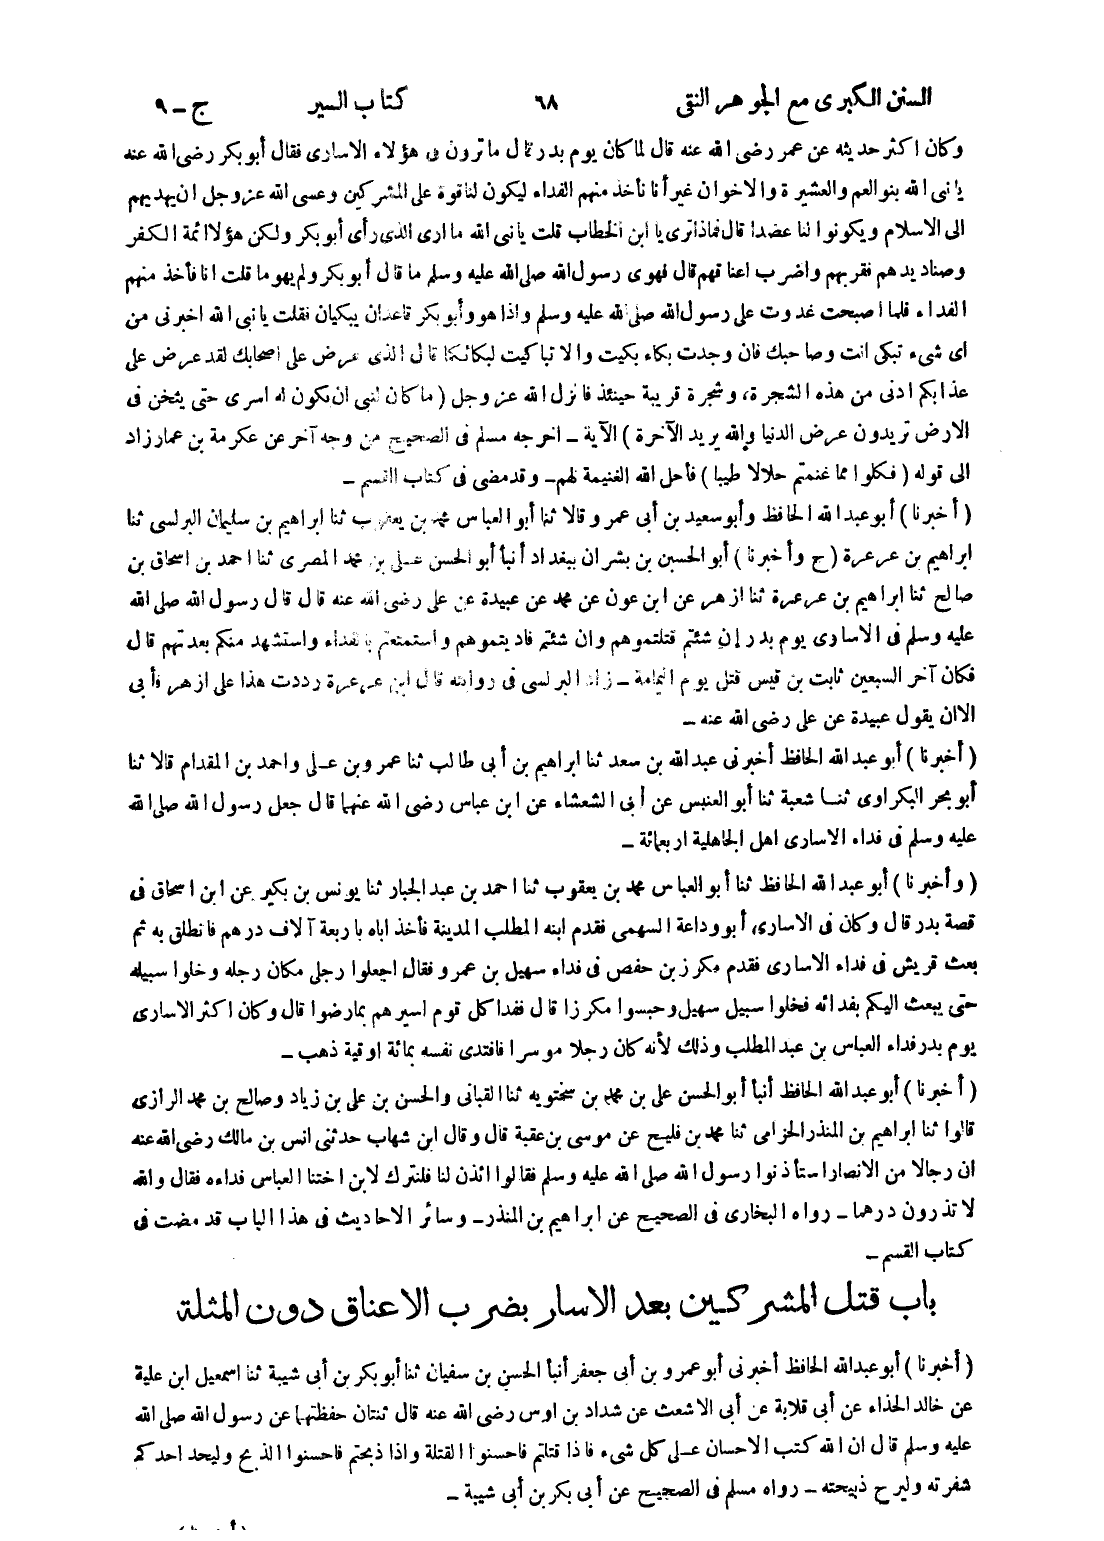 السنن الكبرى مع الجوهر النقى ٦٨ كتاب السير ج - ٩
وكان اكثر حديثه عن عمر رضى الله عنه قال لما كان يوم بدر قال ما ترون فى هؤلاء الاسارى فقال أبو بكر رضى الله عنه
يا نبى الله بنو العم والعشيرة والاخوان غير أنا نأخذ منهم الفداء ليكون لنا قوة على المشركين وعسى الله عز وجل ان يهديهم
الى الاسلام ويكونوا لنا عضدا قال فماذا ترى يا ابن الخطاب قلت يا نبى الله ما ارى الذى رأى أبو بكر ولكن هؤلا ائمة الكفر
وصناديدهم فقربهم واضرب اعناقهم قال فهوى رسول الله صلى الله عليه وسلم ما قال أبو بكر ولم يهو ما قلت انا فأخذ منهم
الفداء فلما اصبحت غدوت على رسول الله صلى الله عليه وسلم واذا هو وأبو بكر قاعدان يبكيان فقلت يا نبى الله اخبرنى من
اى شىء تبكى انت وصاحبك فان وجدت بكاء بكيت والا تباكيت لبكائكما قال الذى عرض على اصحابك لقد عرض على
عذابكم ادنى من هذه الشجرة، وشجرة قريبة حينئذ فانزل الله عز وجل ( ما كان لنبى ان يكون له اسرى حتى يثخن فى
الارض تريدون عرض الدنيا والله يريد الآخرة ) الآية - اخرجه مسلم فى الصحيح من وجه آخر عن عكرمة بن عمار زاد
الى قوله ( فكلوا مما غنمتم حلالا طيبا ) فأحل الله الغنيمة لهم - وقد مضى فى كتاب القسم -
( أخبرنا ) أبو عبد الله الحافظ وأبو سعيد بن أبى عمرو قالا ثنا أبو العباس محمد بن يعقوب ثنا ابراهيم بن سليمان البرلسى ثنا
ابراهيم بن عرعرة ( ح وأخبرنا ) أبو الحسين بن بشران ببغداد أنبأ أبو الحسن على بن محمد المصرى ثنا احمد بن اسحاق بن
صالح ثنا ابراهيم بن عرعرة ثنا ازهر عن ابن عون عن محمد عن عبيدة عن على رضى الله عنه قال قال رسول الله صلى الله
عليه وسلم فى الاسارى يوم بدر إن شئتم قتلتموهم وان شئتم فاديتموهم واستمتعتم بالفداء واستشهد منكم بعدتهم قال
فكان آخر السبعين ثابت بن قيس قتل يوم اليمامة - زاد البرلسى فى روايته قال ابن عرعرة رددت هذا على ازهر فأبى
الا ان يقول عبيدة عن على رضى الله عنه -
( أخبرنا ) أبو عبد الله الحافظ أخبرنى عبد الله بن سعد ثنا ابراهيم بن أبى طالب ثنا عمرو بن على واحمد بن المقدام قالا ثنا
أبو بحر البكراوى ثنا شعبة ثنا أبو العنبس عن أبى الشعثاء عن ابن عباس رضى الله عنهما قال جعل رسول الله صلى الله
عليه وسلم فى فداء الاسارى اهل الجاهلية اربعمائة -
( وأخبرنا ) أبو عبد الله الحافظ ثنا أبو العباس محمد بن يعقوب ثنا احمد بن عبد الجبار ثنا يونس بن بكير عن ابن اسحاق فى
قصة بدر قال وكان فى الاسارى أبو وداعة السهمى فقدم ابنه المطلب المدينة فأخذ اباه باربعة آلاف درهم فانطلق به ثم
بعث قريش فى فداء الاسارى فقدم مكرز بن حفص فى فداء سهيل بن عمرو فقال اجعلوا رجلى مكان رجله وخلوا سبيله
حتى يبعث اليكم بفدائه فخلوا سبيل سهيل وحبسوا مكرزا قال ففدا كل قوم اسيرهم بما رضوا قال وكان اكثر الاسارى
يوم بدر فداء العباس بن عبد المطلب وذلك لأنه كان رجلا موسرا فافتدى نفسه بمائة اوقية ذهب -
( أخبرنا ) أبو عبد الله الحافظ أنبأ أبو الحسن على بن محمد بن سختويه ثنا القبانى والحسن بن على بن زياد وصالح بن محمد الرازى
قالوا ثنا ابراهيم بن المنذر الحزامى ثنا محمد بن فليح عن موسى بن عقبة قال وقال ابن شهاب حدثنى انس بن مالك رضى الله عنه
ان رجالا من الانصار استأذنوا رسول الله صلى الله عليه وسلم فقالوا ائذن لنا فلنترك لابن اختنا العباس فداءه فقال والله
لا تذرون درهما - رواه البخارى فى الصحيح عن ابراهيم بن المنذر - وسائر الاحاديث فى هذا الباب قد مضت فى
كتاب القسم -
باب قتل المشركين بعد الاسار بضرب الاعناق دون المثلة
( أخبرنا ) أبو عبد الله الحافظ أخبرنى أبو عمرو بن أبى جعفر أنبأ الحسن بن سفيان ثنا أبو بكر بن أبى شيبة ثنا اسمعيل ابن علية
عن خالد الحذاء عن أبى قلابة عن أبى الاشعث عن شداد بن اوس رضى الله عنه قال ثنتان حفظتهما عن رسول الله صلى الله
عليه وسلم قال ان الله كتب الاحسان على كل شىء فاذا قتلتم فاحسنوا القتلة واذا ذبحتم فاحسنوا الذبح وليحد احدكم
شفرته وليرح ذبيحته - رواه مسلم فى الصحيح عن أبى بكر بن أبى شيبة -